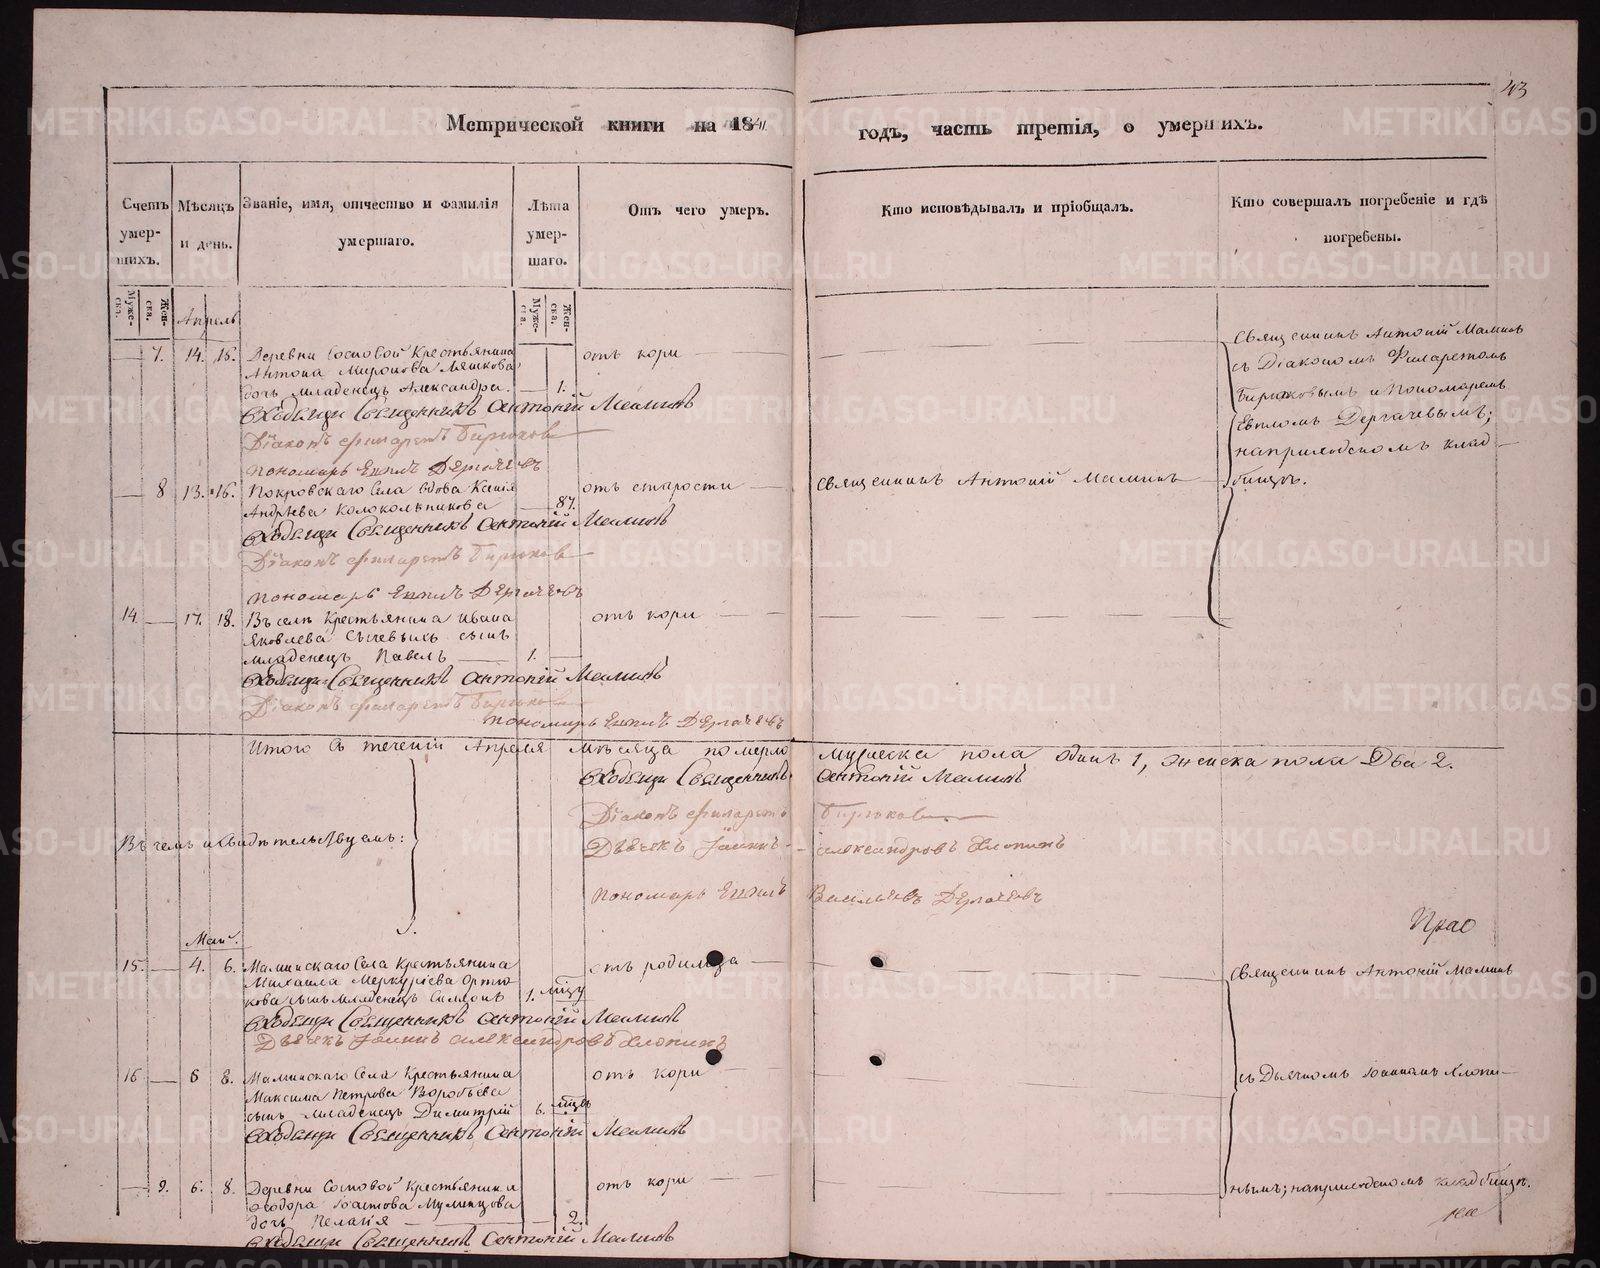 43
Метрической книги на 1841
годъ, часть третія, о умершихъ.
Счетъ умер-шихъ.
Мѣсяцъ и день.
Званіе, имя, отчество и фамилія умершаго.
Лѣта умер-шаго.
Отъ чего умеръ.
Кто исповѣдывалъ и пріобщалъ.
Кто совершалъ погребеніе и гдѣ погребены.
Муже-ска.
Жен-ска.
Муже-ска.
Жен-ска.
Апрель
7. 14. 15. Деревни Сосновой Крестьянина
Антона Миронова Ляшкова
дочь младенецъ Александра. 1.
отъ кори
Священникъ Антоній Маминъ
съ Діакономъ Филаретомъ
Бирюковымъ и Пономаремъ
Евпломъ Дергачевымъ;
на приходскомъ клад-
бищѣ.
Священникъ Антоній Маминъ
Діаконъ Филаретъ Бирюковъ
Пономарь Евплъ Дергачевъ
8 13. 16. Покровскаго Села вдова
Андрѣева Колокольникова 87.
отъ старости
Священникъ Антоній Маминъ
Священникъ Антоній Маминъ
Діаконъ Филаретъ Бирюковъ
Пономарь Евплъ Дергачевъ
14. 17. 18. Въ селѣ Крестьянина Ивана
Яковлева Сычевыхъ сынъ
младенецъ Павелъ 1.
отъ кори
Священникъ Антоній Маминъ
Діаконъ Филаретъ Бирюковъ
Пономарь Евплъ Дергачевъ
Итого въ теченіи Апреля мѣсяца померло мужеска пола одинъ 1, женска пола два 2.
Священникъ Антоній Маминъ
Діаконъ Филаретъ Бирюковъ
Въ чемъ и свидѣтельствуемъ:
Дьячекъ Іоаннъ Александровъ Хлопинъ
Пономарь Евплъ Васильевъ Дергачевъ
Май.
15. 4. 6. Маминскаго Села Крестьянина
Михаила Меркурьева
сынъ младенецъ 1.
отъ родимца
Священникъ Антоній Маминъ
Священникъ Антоній Маминъ
Дьячекъ Іоаннъ Александровъ Хлопинъ
16 6 8. Маминскаго Села Крестьянина
Максима Петрова Воробьева
сынъ младенецъ Димитрій 6.
отъ кори
съ Дьячкомъ Іоанномъ Хлопи-
Священникъ Антоній Маминъ
9. 6. 8. Деревни Сосновой Крестьянина
дочь Пелагія 2.
отъ кори
нымъ; на приходскомъ кладбищѣ.
Священникъ Антоній Маминъ
METRIKI.GASO-URAL.RU